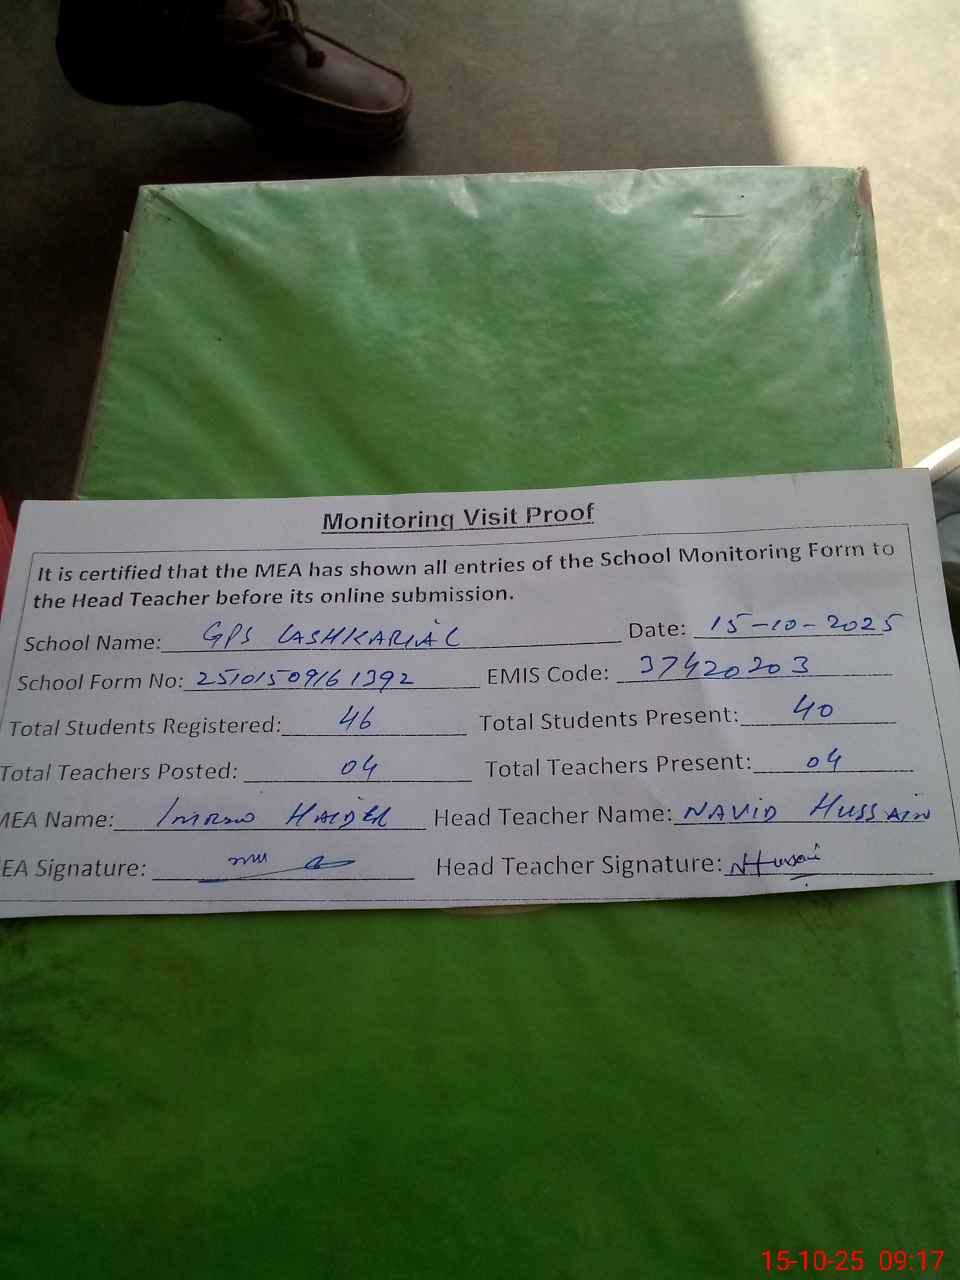 Monitoring Visit Proof
It is certified that the MEA has shown all entries of the School Monitoring Form to
the Head Teacher before its online submission.
School Name: GPS LASHKARIAL Date: 15-10-2025
School Form No: 25101509161392 EMIS Code: 37420203
Total Students Registered: 46 Total Students Present: 40
Total Teachers Posted: 04 Total Teachers Present: 04
MEA Name: Imran HAIDER Head Teacher Name: NAVID HUSSAIN
EA Signature: Head Teacher Signature: NHussai
15-10-25 09:17